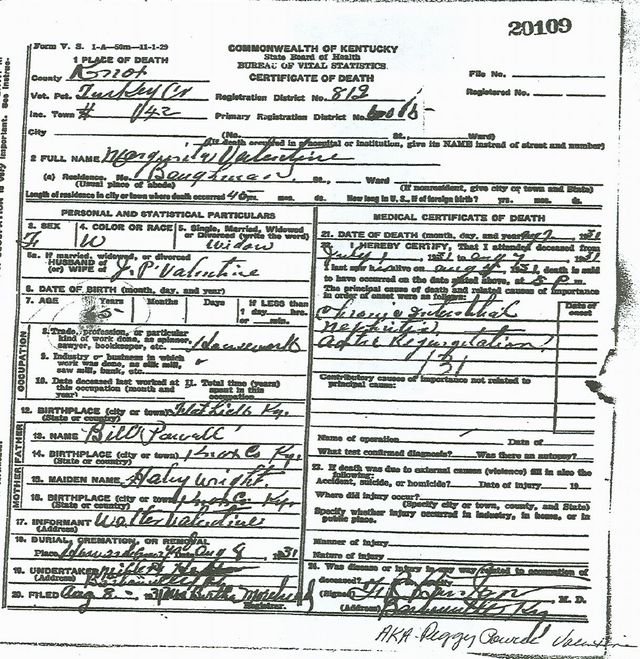 20109
Form V. S. 1-A—50m—11-1-29
COMMONWEALTH OF KENTUCKY
State Board of Health
BUREAU OF VITAL STATISTICS
CERTIFICATE OF DEATH
1 PLACE OF DEATH
County Knox
Vot. Pct. Turkey Cr
Inc. Town # 42
City
File No.
Registered No.
Registration District No. 813
Primary Registration District No.
(No. St., Ward)
(If death occurred in a hospital or institution, give its NAME instead of street and number)
2 FULL NAME Valentine
(a) Residence. No. Baughman St., Ward
(Usual place of abode) (If nonresident, give city or town and State)
Length of residence in city or town where death occurred 45 yrs. mos. ds. How long in U. S., if of foreign birth? yrs. mos. ds.
PERSONAL AND STATISTICAL PARTICULARS
3. SEX F
4. COLOR OR RACE W
5. Single, Married, Widowed or Divorced (write the word) widow
5a. If married, widowed, or divorced
HUSBAND of
(or) WIFE of J. P. Valentine
6. DATE OF BIRTH (month, day, and year)
7. AGE Years Months Days If LESS than 1 day, hrs. or min.
OCCUPATION
8. Trade, profession, or particular kind of work done, as spinner, sawyer, bookkeeper, etc. Housework
9. Industry or business in which work was done, as silk mill, saw mill, bank, etc.
10. Date deceased last worked at this occupation (month and year)
11. Total time (years) spent in this occupation
12. BIRTHPLACE (city or town) Flat Lick Ky.
(State or country)
FATHER
13. NAME Bill Powell
14. BIRTHPLACE (city or town) Knox Co Ky.
(State or country)
MOTHER
15. MAIDEN NAME Wright
16. BIRTHPLACE (city or town) Knox Co. Ky.
(State or country)
17. INFORMANT Walter Valentine
(Address)
18. BURIAL, CREMATION, OR REMOVAL
Place Date Aug 9 1931
19. UNDERTAKER
(Address) Barbourville Ky
20. FILED Aug 8 - 31
Registrar.
MEDICAL CERTIFICATE OF DEATH
21. DATE OF DEATH (month, day, and year) Aug 7 1931
22. I HEREBY CERTIFY, That I attended deceased from
July 1 1931 to Aug 7 1931
I last saw h alive on Aug 1931, death is said
to have occurred on the date stated above, at 8 P m.
The principal cause of death and related causes of importance
in order of onset were as follows:
Date of onset
Chronic Interstitial
nephritis
Aortic Regurgitation
131
Contributory causes of importance not related to
principal cause:
Name of operation Date of
What test confirmed diagnosis? Was there an autopsy?
23. If death was due to external causes (violence) fill in also the
following:
Accident, suicide, or homicide? Date of injury 19
Where did injury occur?
(Specify city or town, county, and State)
Specify whether injury occurred in industry, in home, or in
public place.
Manner of injury
Nature of injury
24. Was disease or injury in any way related to occupation of
deceased?
(Signed) M. D.
(Address) Barbourville Ky
AKA - Peggy Powell Valentine